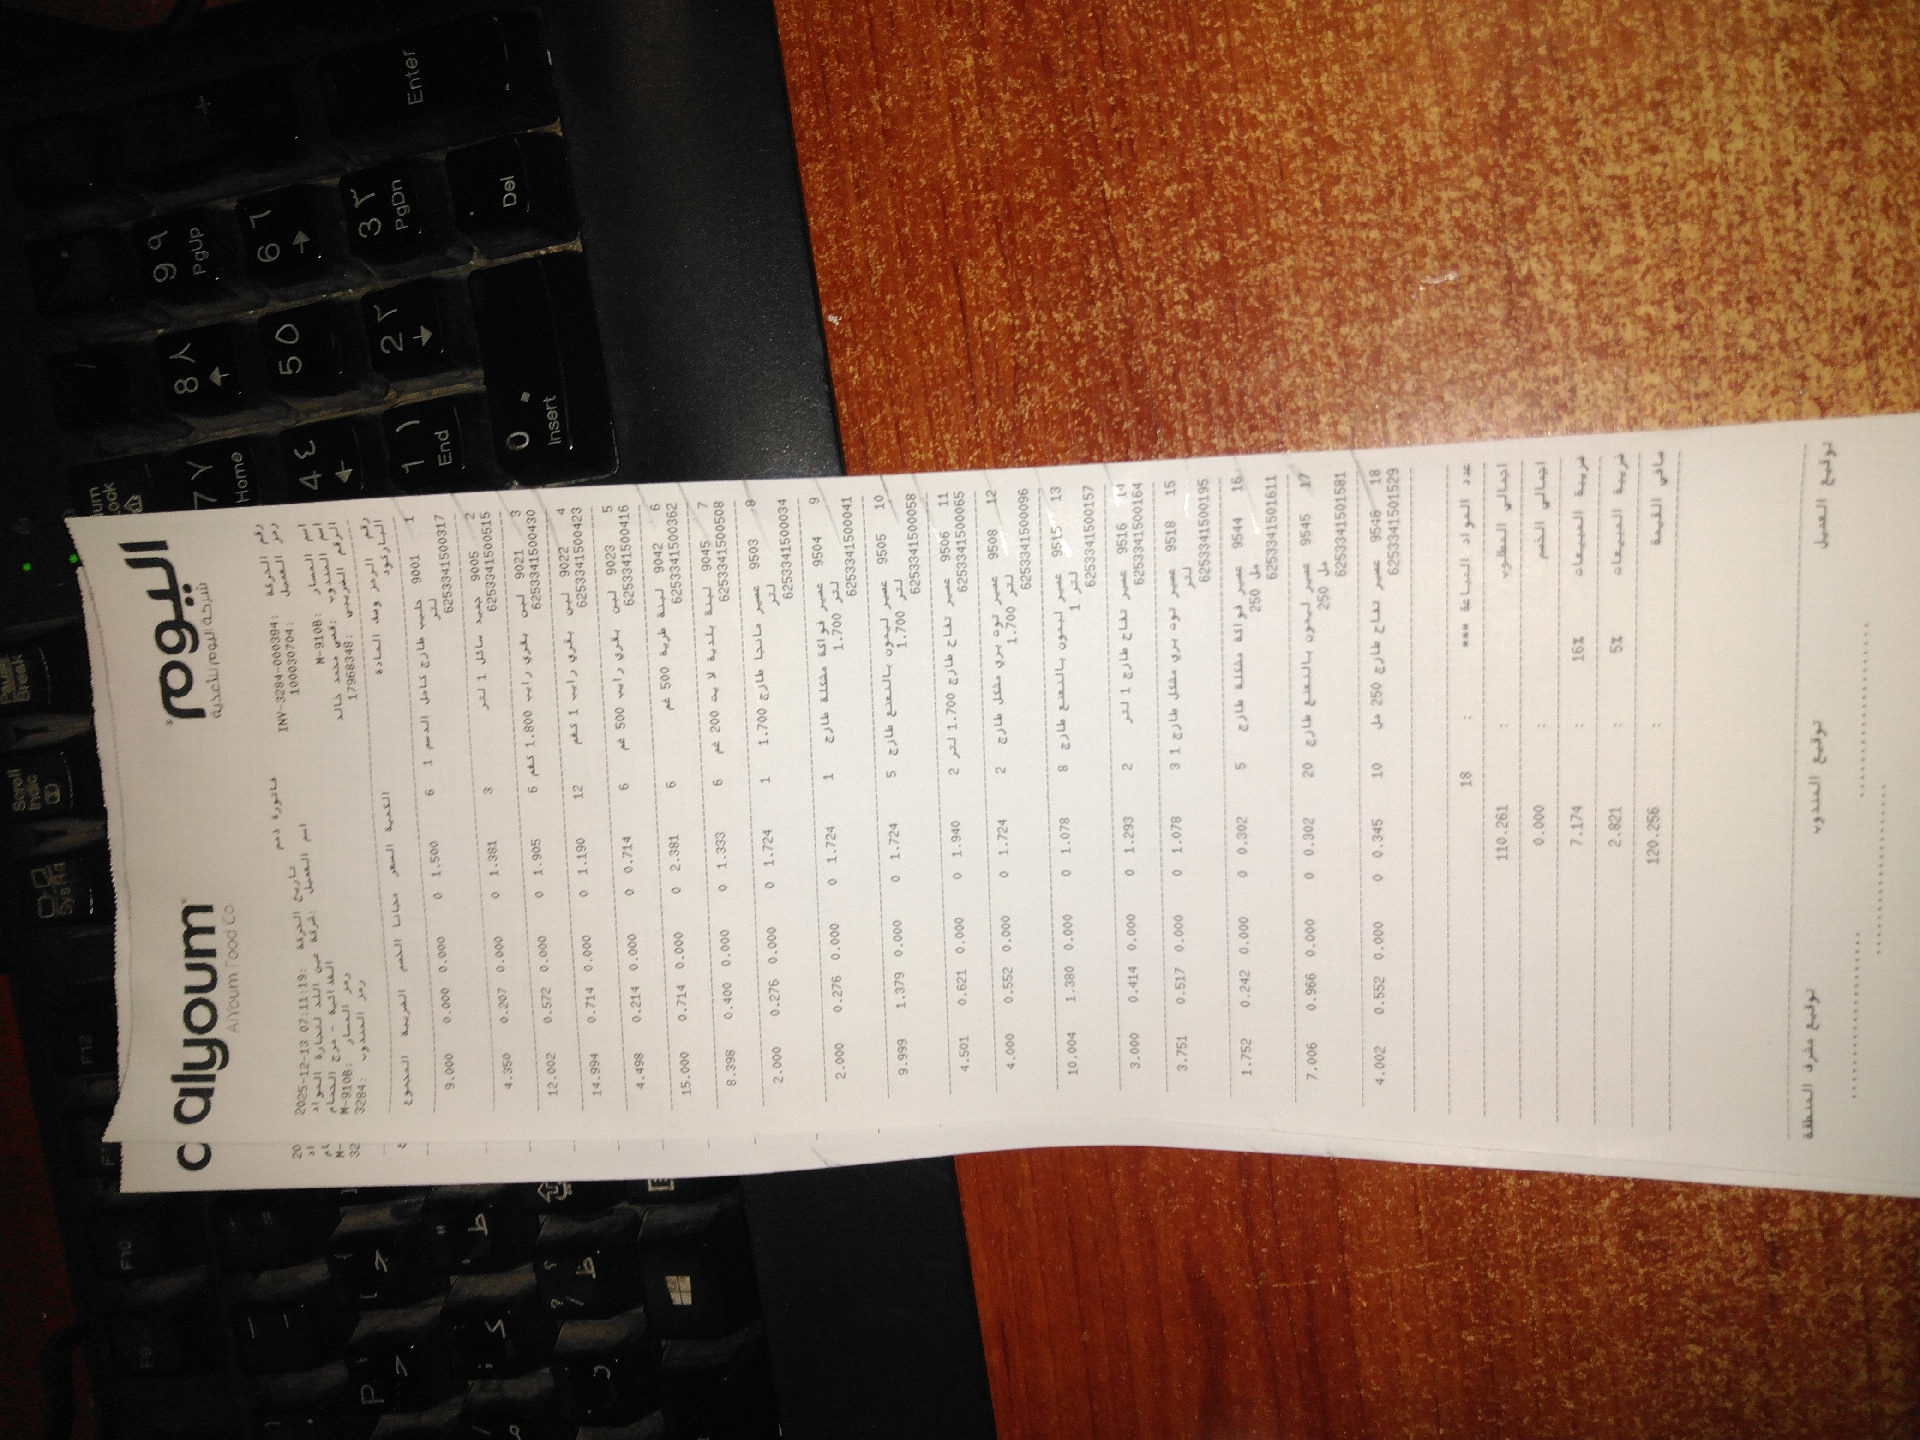 alyoum اليوم
AlYoum Food Co. شركة اليوم للأغذية
فاتورة ذمم
رقم الحركة: INV-3284-000394 تاريخ الحركة: 2025-12-13 07:11:19
رمز العميل: 100030704 اسم العميل: شركة عين اللد لتجارة المواد
الغذائية - مرج الحمام
اسم المسار: M-910B رمز المسار: M-910B
اسم المندوب: قصي محمد خالد رمز المندوب: 3284
الرقم الضريبي: 17968348
رقم الرمز وصف المادة الكمية السعر مجانا الخصم الضريبة المجموع
الباركود
1 9001 حليب طازج كامل الدسم 1 6 1.500 0 0.000 0.000 9.000
لتر
6253341500317
2 9005 جميد سائل 1 لتر 3 1.381 0 0.000 0.207 4.350
6253341500515
3 9021 لبن بقري رايب 1.800 كغم 6 1.905 0 0.000 0.572 12.002
6253341500430
4 9022 لبن بقري رايب 1 كغم 12 1.190 0 0.000 0.714 14.994
6253341500423
5 9023 لبن بقري رايب 500 غم 6 0.714 0 0.000 0.214 4.498
6253341500416
6 9042 لبنة طرية 500 غم 6 2.381 0 0.000 0.714 15.000
6253341500362
7 9045 لبنة بلدية لايت 200 غم 6 1.333 0 0.000 0.400 8.398
6253341500508
8 9503 عصير مانجا طازج 1.700 1 1.724 0 0.000 0.276 2.000
لتر
6253341500034
9 9504 عصير فواكة مشكلة طازج 1 1.724 0 0.000 0.276 2.000
1.700 لتر
6253341500041
10 9505 عصير ليمون بالنعنع طازج 5 1.724 0 0.000 1.379 9.999
1.700 لتر
6253341500058
11 9506 عصير تفاح طازج 1.700 لتر 2 1.940 0 0.000 0.621 4.501
6253341500065
12 9508 عصير توت بري مشكل طازج 2 1.724 0 0.000 0.552 4.000
1.700 لتر
6253341500096
13 9515 عصير ليمون بالنعنع طازج 8 1.078 0 0.000 1.380 10.004
1 لتر
6253341500157
14 9516 عصير تفاح طازج 1 لتر 2 1.293 0 0.000 0.414 3.000
6253341500164
15 9518 عصير توت بري مشكل طازج 1 3 1.078 0 0.000 0.517 3.751
لتر
6253341500195
16 9544 عصير فواكة مشكلة طازج 5 0.302 0 0.000 0.242 1.752
250 مل
6253341501611
17 9545 عصير ليمون بالنعنع طازج 20 0.302 0 0.000 0.966 7.006
250 مل
6253341501581
18 9546 عصير تفاح طازج 250 مل 10 0.345 0 0.000 0.552 4.002
6253341501529
عدد المواد المباعة *** : 18
اجمالي المطلوب : 110.261
اجمالي الخصم : 0.000
ضريبة المبيعات 16% : 7.174
ضريبة المبيعات 5% : 2.821
صافي القيمة : 120.256
توقيع العميل توقيع المندوب توقيع مشرف المنطقة
Enter
+
9 ٩ PgUp
6 ٦
3 ٣ PgDn
Del
8 ٨
5
2 ٢
0 Insert
7 ٧ Home
4 ٤
1 ١ End
Pause Break
Scroll
F12
F10
F9